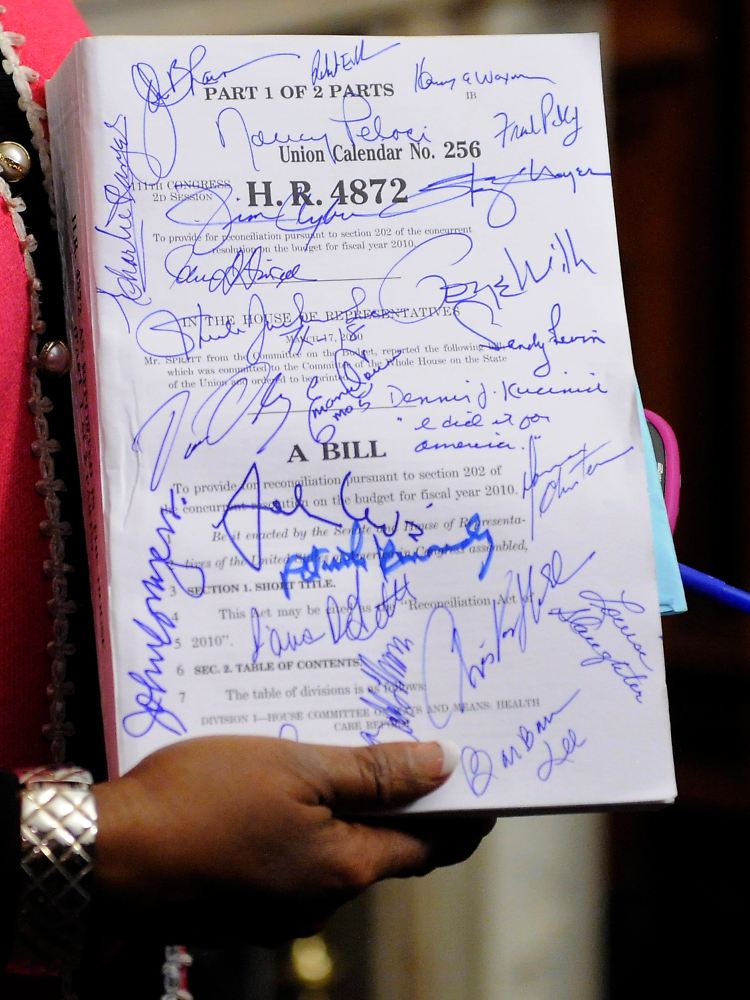 PART 1 OF 2 PARTS
IB
Henry A Waxman
Nancy Pelosi
Frank
Union Calendar No. 256
111TH CONGRESS
2D SESSION
H. R. 4872
Charlie Rangel
Steny Hoyer
Jim Clyburn
To provide for reconciliation pursuant to section 202 of the concurrent
resolution on the budget for fiscal year 2010.
George Miller
IN THE HOUSE OF REPRESENTATIVES
MARCH 17, 2010
Sheila Jackson Lee
TX 18
Sandy Levin
Mr. SPRATT from the Committee on the Budget, reported the following bill;
which was committed to the Committee of the Whole House on the State
of the Union and ordered to be printed
Emanuel
Dennis J. Kucinich
"I did it for
america."
A BILL
Donna
Christensen
To provide for reconciliation pursuant to section 202 of
the concurrent resolution on the budget for fiscal year 2010.
Be it enacted by the Senate and House of Representa-
tives of the United States of America in Congress assembled,
Patrick Kennedy
3 SECTION 1. SHORT TITLE.
4 This Act may be cited as the "Reconciliation Act of
5 2010".
Diana DeGette
Louise
Slaughter
John Conyers Jr.
6 SEC. 2. TABLE OF CONTENTS.
7 The table of divisions is as follows:
DIVISION I—HOUSE COMMITTEE ON WAYS AND MEANS: HEALTH
CARE
Barbara
Lee